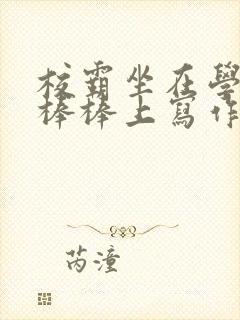 校霸坐在學
棒棒上寫作
芮潼